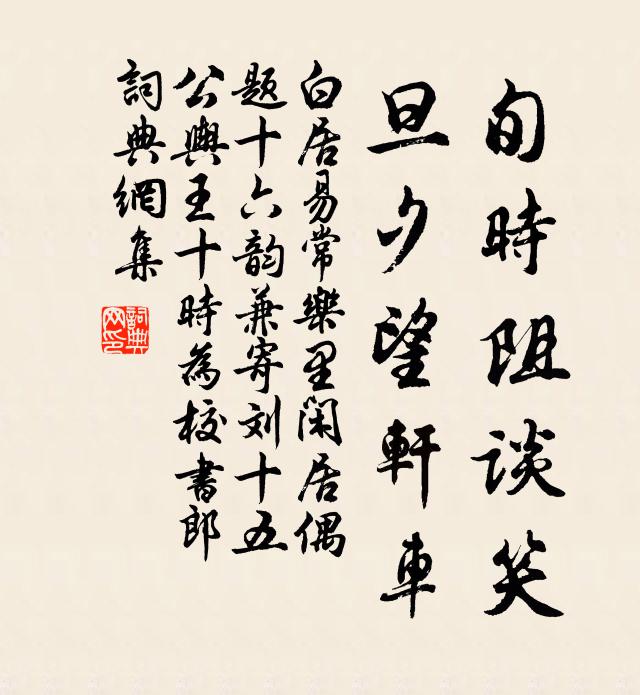 旬時阻谈笑
旦夕望軒車
白居易常樂里闲居偶
题十六韵兼寄刘十五
公輿王十時為校書郎
詞典網集
詞典网印